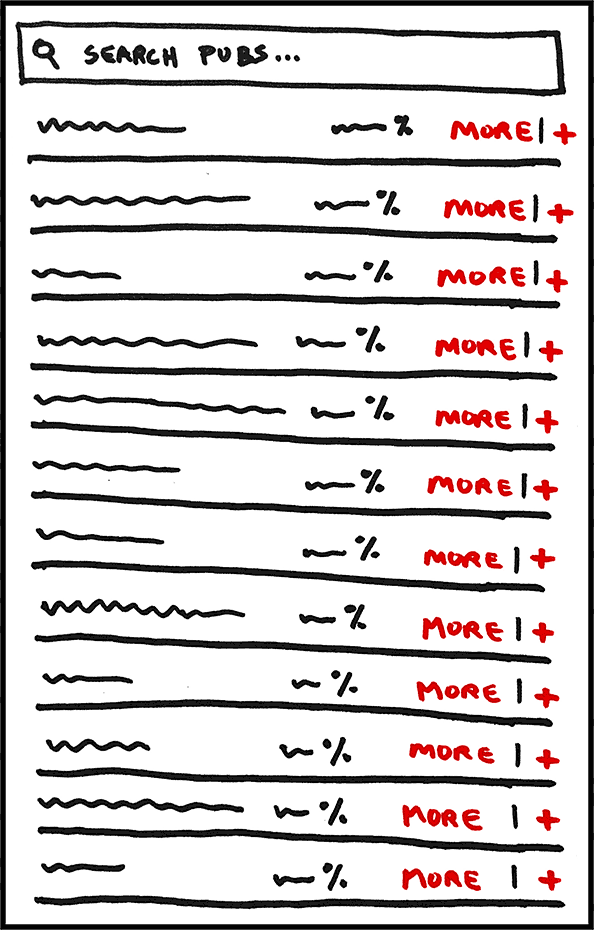 SEARCH PUBS...
% MORE | +
% MORE | +
% MORE | +
% MORE | +
% MORE | +
% MORE | +
% MORE | +
% MORE | +
% MORE | +
% MORE | +
% MORE | +
% MORE | +